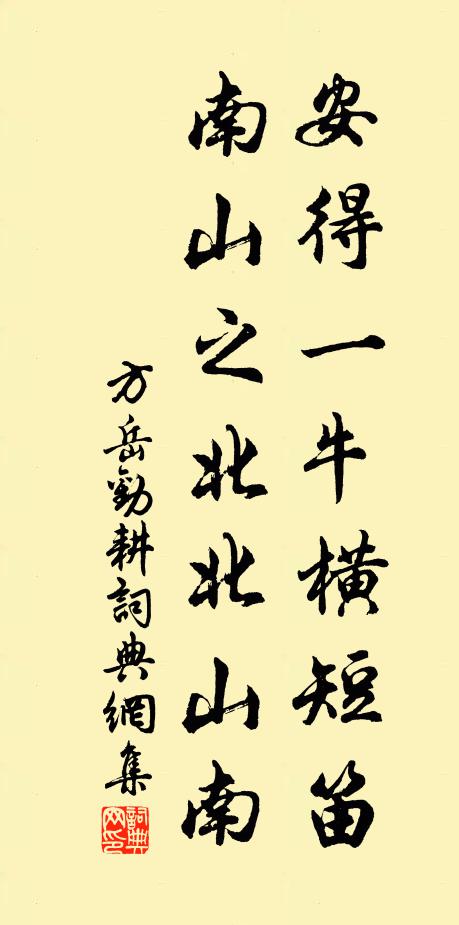 安得一牛橫短笛
南山之北北山南
方岳勸耕詞典網集
詞典網印